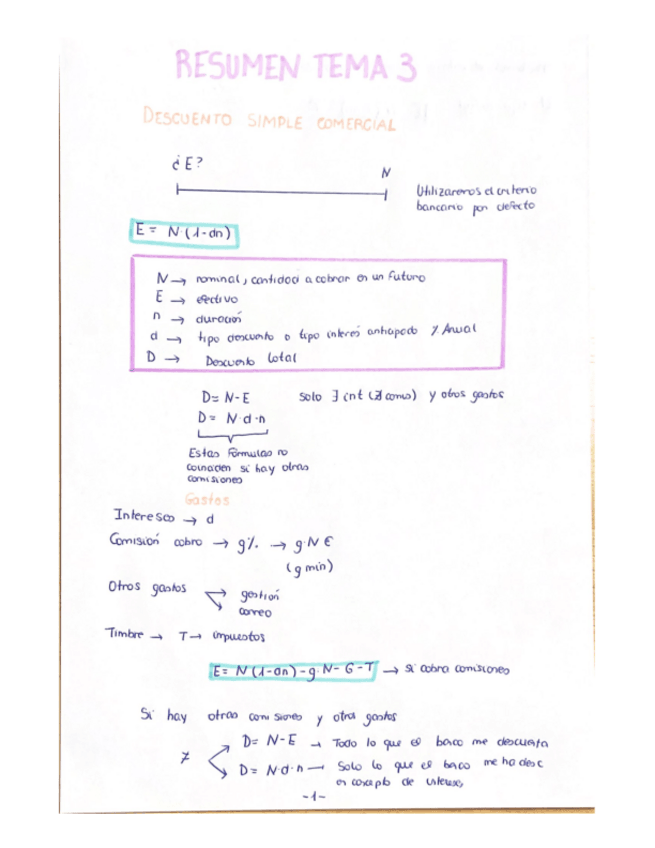 RESUMEN TEMA 3
DESCUENTO SIMPLE COMERCIAL
¿E?
N
Utilizaremos el criterio
bancario por defecto
E = N (1-dn)
N → nominal, cantidad a cobrar en un futuro
E → efectivo
n → duración
d → tipo descuento o tipo interés anticipado / Anual
D → Descuento total
D = N-E
solo ∃ int (∄ comis) y otros gastos
D = N·d·n
Estas fórmulas no
coinciden si hay otras
comisiones
Gastos
Intereses → d
Comisión cobro → g% → g·N €
(g min)
Otros gastos
gestión
correo
Timbre → T → impuestos
E = N (1-dn) - g·N - G - T → si cobra comisiones
Si hay otras comisiones y otros gastos
≠
D = N-E → Todo lo que el banco me descuenta
D = N·d·n → Solo lo que el banco me ha desc
en concepto de intereses
-1-